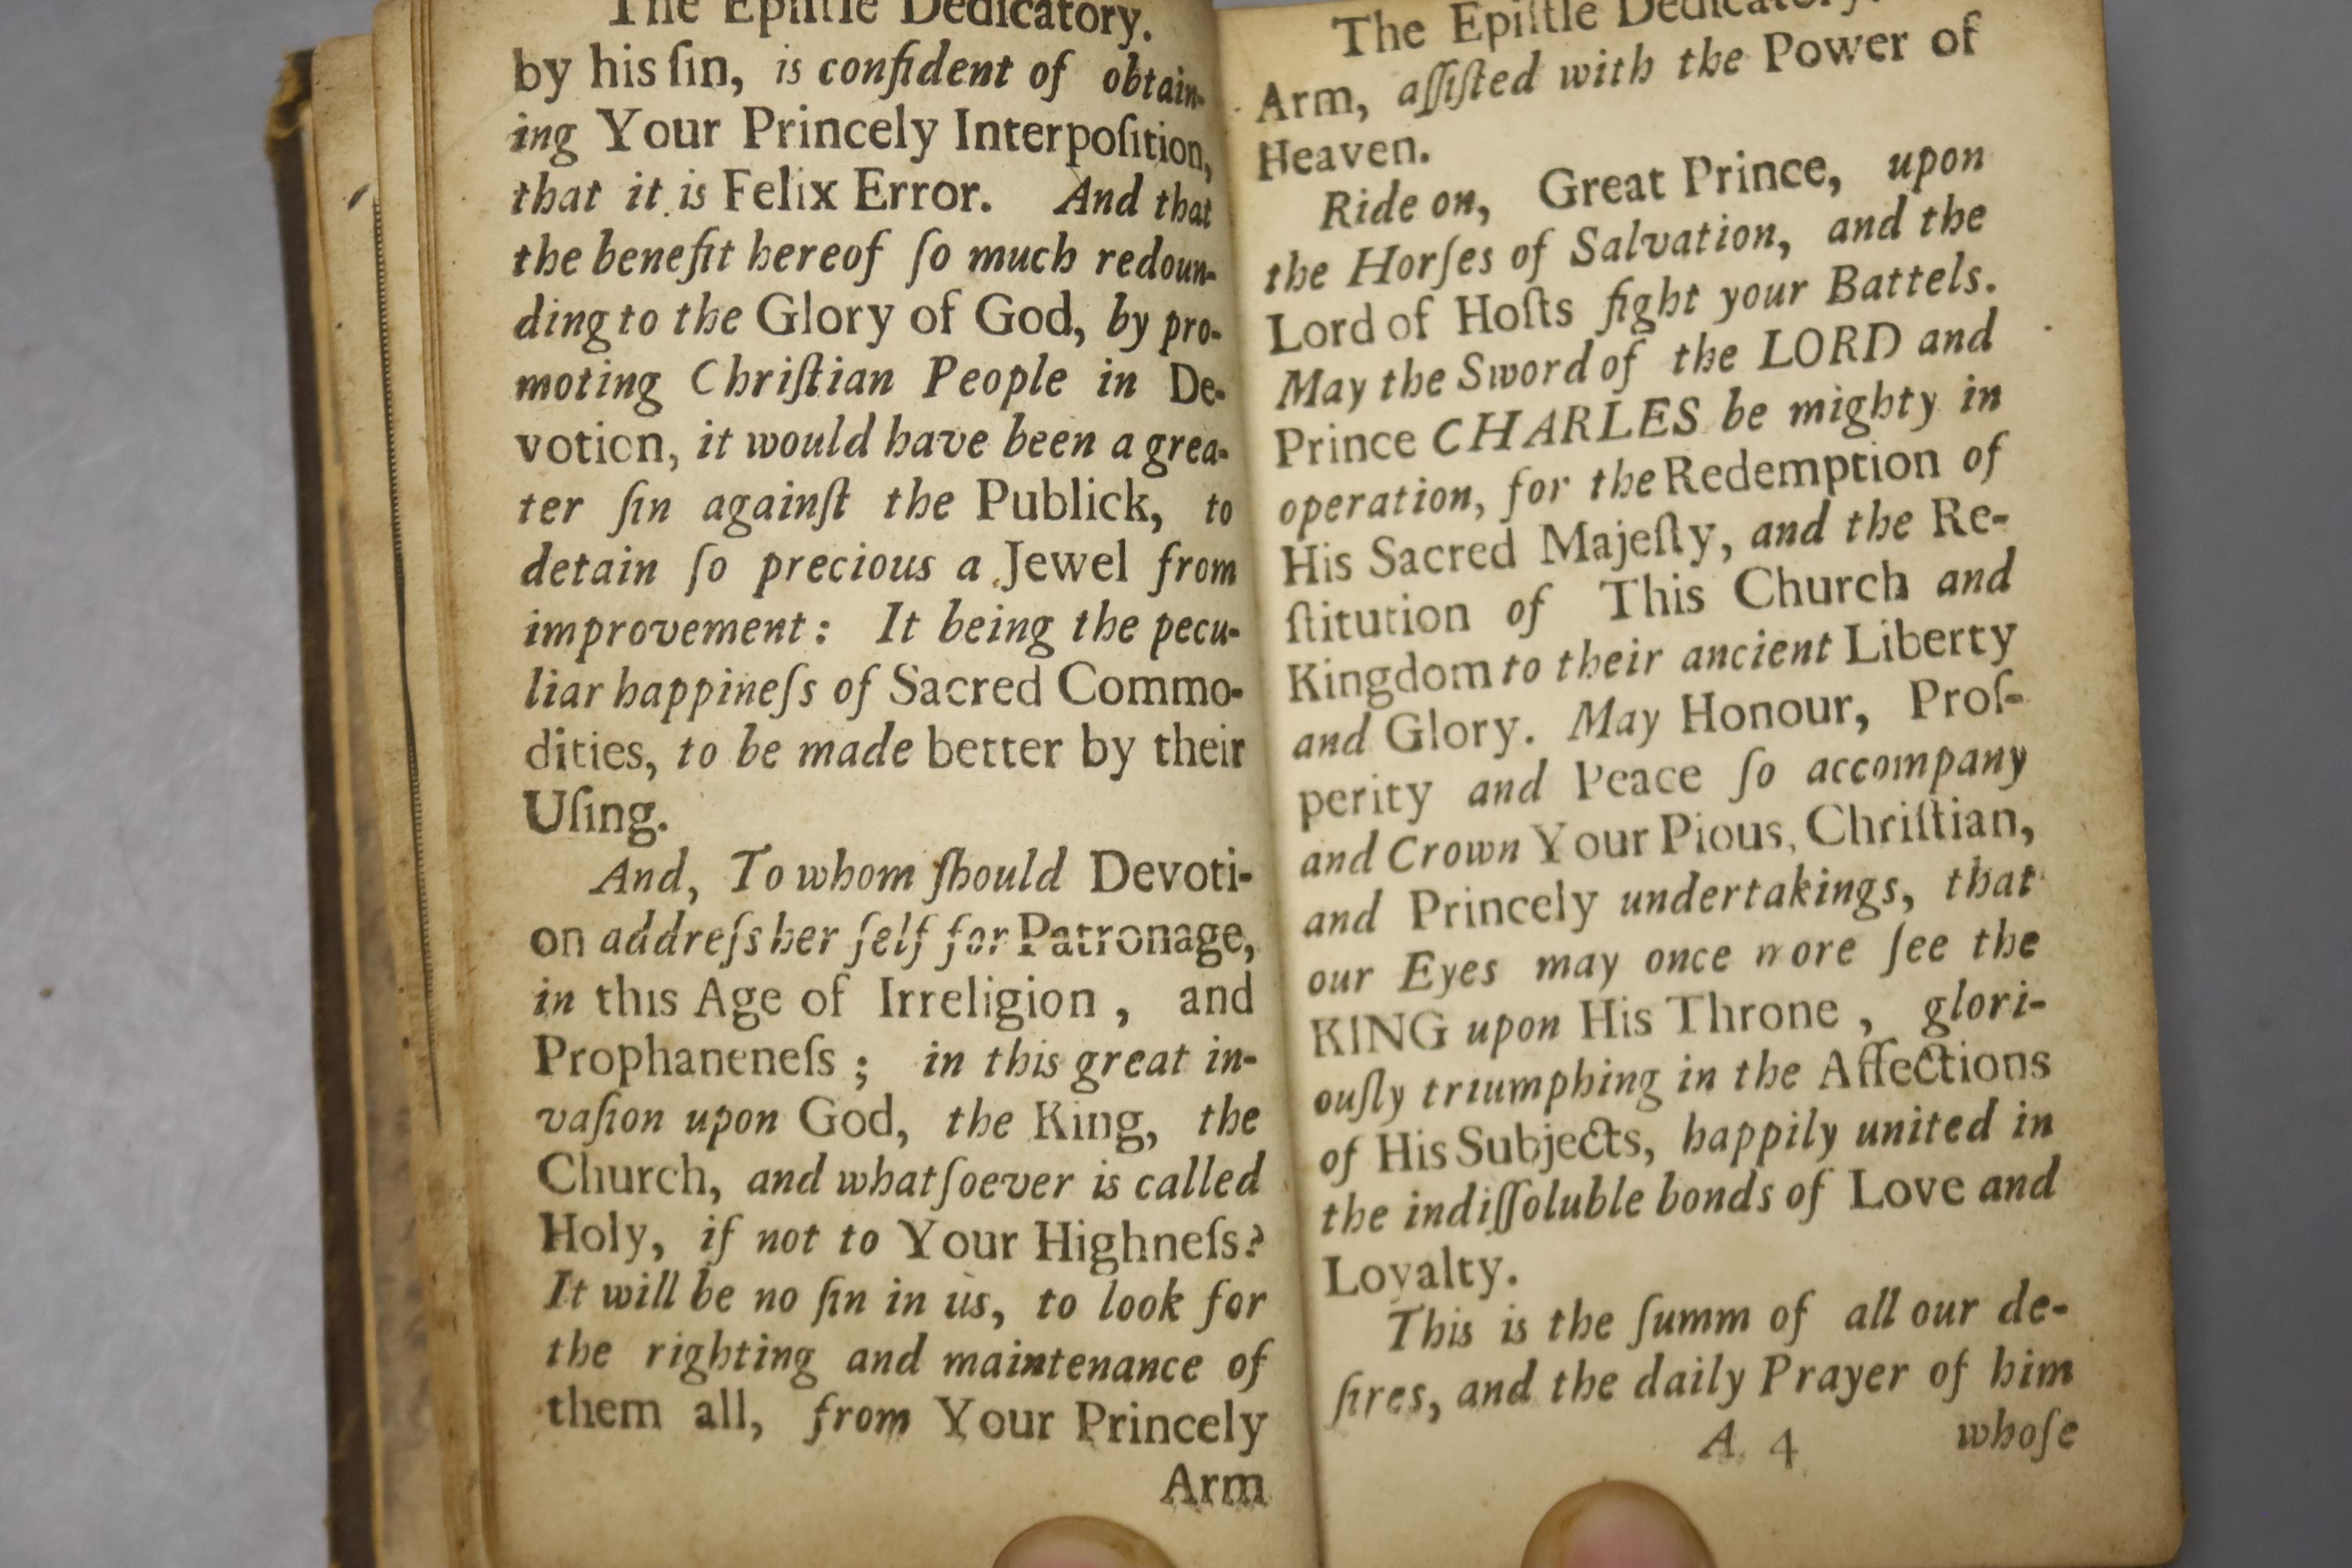 The Epiſtle Dedicatory.
by his ſin, is confident of obtain-
ing Your Princely Interpoſition,
that it is Felix Error. And that
the benefit hereof ſo much redoun-
ding to the Glory of God, by pro-
moting Chriſtian People in De-
votion, it would have been a grea-
ter ſin againſt the Publick, to
detain ſo precious a Jewel from
improvement: It being the pecu-
liar happineſs of Sacred Commo-
dities, to be made better by their
Uſing.
And, To whom ſhould Devoti-
on addreſs her ſelf for Patronage,
in this Age of Irreligion, and
Prophaneneſs; in this great in-
vaſion upon God, the King, the
Church, and whatſoever is called
Holy, if not to Your Highneſs?
It will be no ſin in us, to look for
the righting and maintenance of
them all, from Your Princely
Arm
The Epiſtle Dedicatory.
Arm, aſſiſted with the Power of
Heaven.
Ride on, Great Prince, upon
the Horſes of Salvation, and the
Lord of Hoſts fight your Battels.
May the Sword of the LORD and
Prince CHARLES be mighty in
operation, for the Redemption of
His Sacred Majeſty, and the Re-
ſtitution of This Church and
Kingdom to their ancient Liberty
and Glory. May Honour, Proſ-
perity and Peace ſo accompany
and Crown Your Pious, Chriſtian,
and Princely undertakings, that
our Eyes may once more ſee the
KING upon His Throne, glori-
ouſly triumphing in the Affections
of His Subjects, happily united in
the indiſſoluble bonds of Love and
Loyalty.
This is the ſumm of all our de-
ſires, and the daily Prayer of him
A 4 whoſe